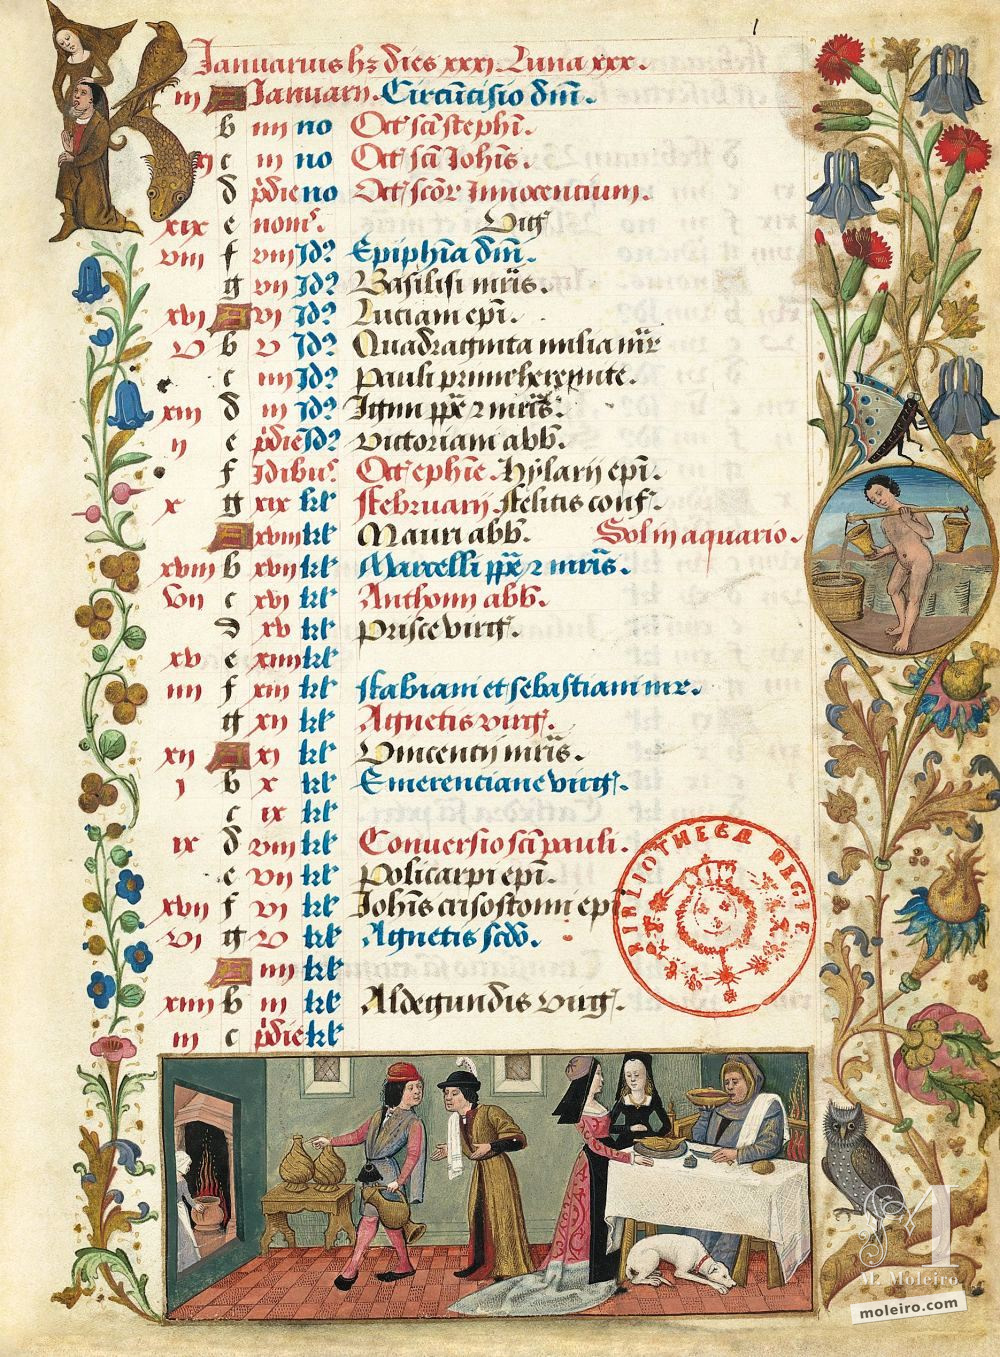 1
Januarius hz dies xxxi. Luna xxx.
iii A Januarij. Circūcisio dm̄.
b iiii no Oct' sc̄i stephī.
xi c iii no Oct' sc̄i Johīs.
d p̄die no Oct' sc̄or Innocentium.
xix e nonis. Vig̃
viii f viii Id? Epiphīa dm̄.
g vii Id? Basilisi mr̄is.
xvi A vi Id? Luciam epī.
v b v Id? Quadraginta milia mr̄
c iiii Id? Pauli primi heremite.
xiii d iii Id? Igini pp̄e 2 mr̄is.
ii e p̄die Id? Victoriani abb̄.
f Idibus Oct' ephīe. Hylarij epī.
x g xix kl' februarij. felicis conf'.
A xviii kl' Mauri abb̄. Sol in aquario.
xviii b xvii kl' Marcelli pp̄e 2 mr̄is.
vii c xvi kl' Anthonij abb̄.
d xv kl' Prisce virg̃.
xv e xiiii kl'
iiii f xiii kl' fabiani et sebastiani mr.
g xii kl' Agnetis virg̃.
xii A xi kl' Vincencij mr̄is.
i b x kl' Emerenciane virg̃.
c ix kl'
ix d viii kl' Conversio sc̄i pauli.
e vii kl' Policarpi epī.
xvii f vi kl' Johīs crisostomi epī
vi g v kl' Agnetis scd̄o.
A iiii kl'
xiiii b iii kl' Aldegundis virg̃.
iii c p̄die kl'
BIBLIOTHECÆ REGIÆ
M
M. Moleiro
moleiro.com